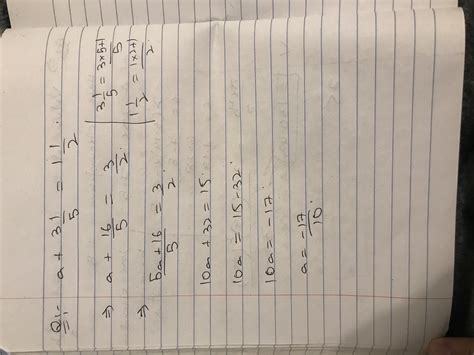 Q:- a + 3 1/5 = 1 1/2.
3 1/5 = 3x5+1/5
1 1/2 = 1x2+1/2
⇒ a + 16/5 = 3/2.
⇒ 5a+16/5 = 3/2.
10a + 32 = 15.
10a = 15-32.
10a = -17.
a = -17/10.